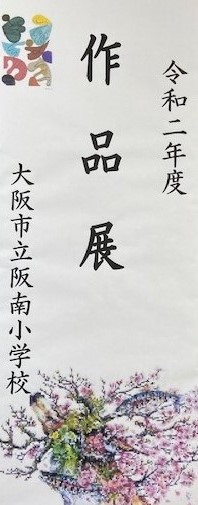 令和二年度
作品展
大阪市立阪南小学校